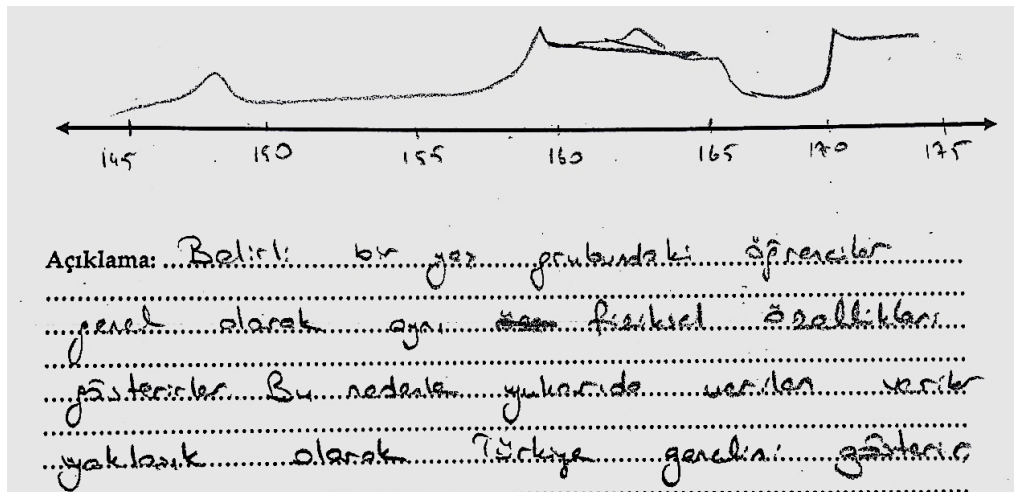 145 150 155 160 165 170 175
Açıklama: Belirli bir yaş grubundaki öğrenciler
genel olarak aynı fiziksel özellikleri
gösterirler. Bu nedenle yukarıda verilen veriler
yaklaşık olarak Türkiye genelini gösterir